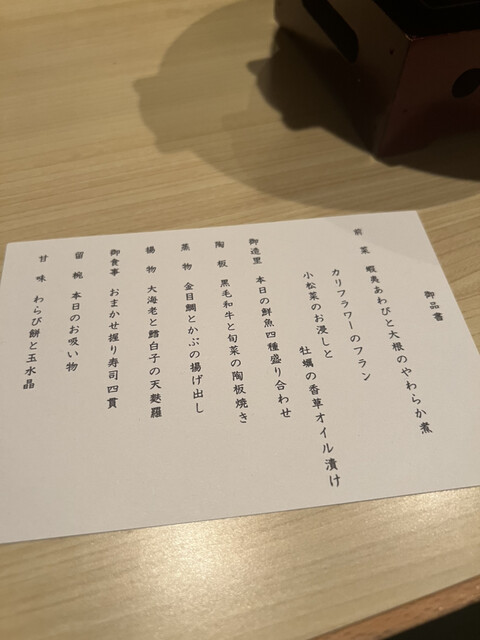 御品書
前菜 蝦夷あわびと大根のやわらか煮
カリフラワーのフラン
小松菜のお浸しと 牡蠣の香草オイル漬け
御造里 本日の鮮魚四種盛り合わせ
陶板 黒毛和牛と旬菜の陶板焼き
蒸物 金目鯛とかぶの揚げ出し
揚物 大海老と鱈白子の天麩羅
御食事 おまかせ握り寿司四貫
留椀 本日のお吸い物
甘味 わらび餅と玉水晶